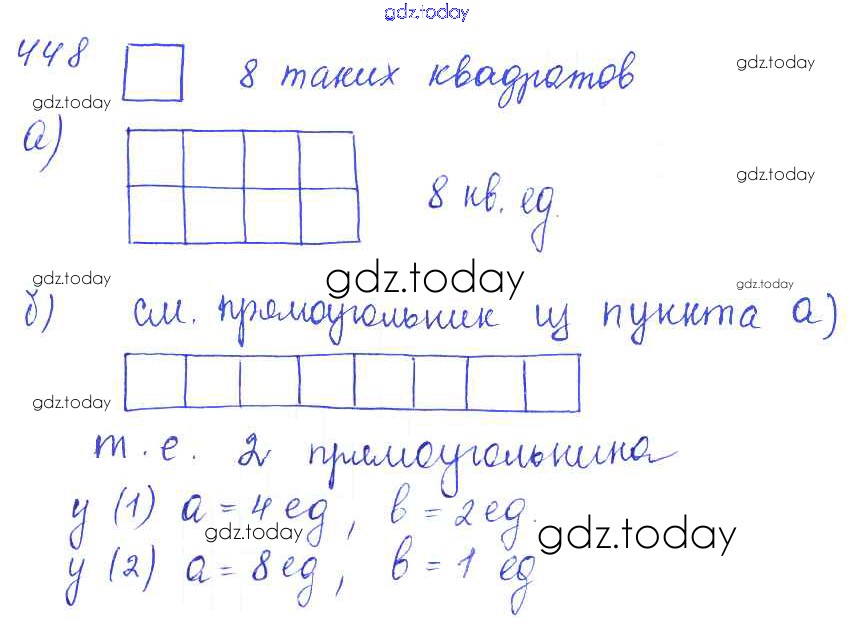 gdz.today
448 8 таких квадратов gdz.today
gdz.today
а)
8 кв. ед. gdz.today
gdz.today gdz.today gdz.today
б) см. прямоугольник из пункта а)
gdz.today
т.е. 2 прямоугольника
у (1) a = 4 ед, b = 2 ед.
gdz.today gdz.today
у (2) a = 8 ед, b = 1 ед